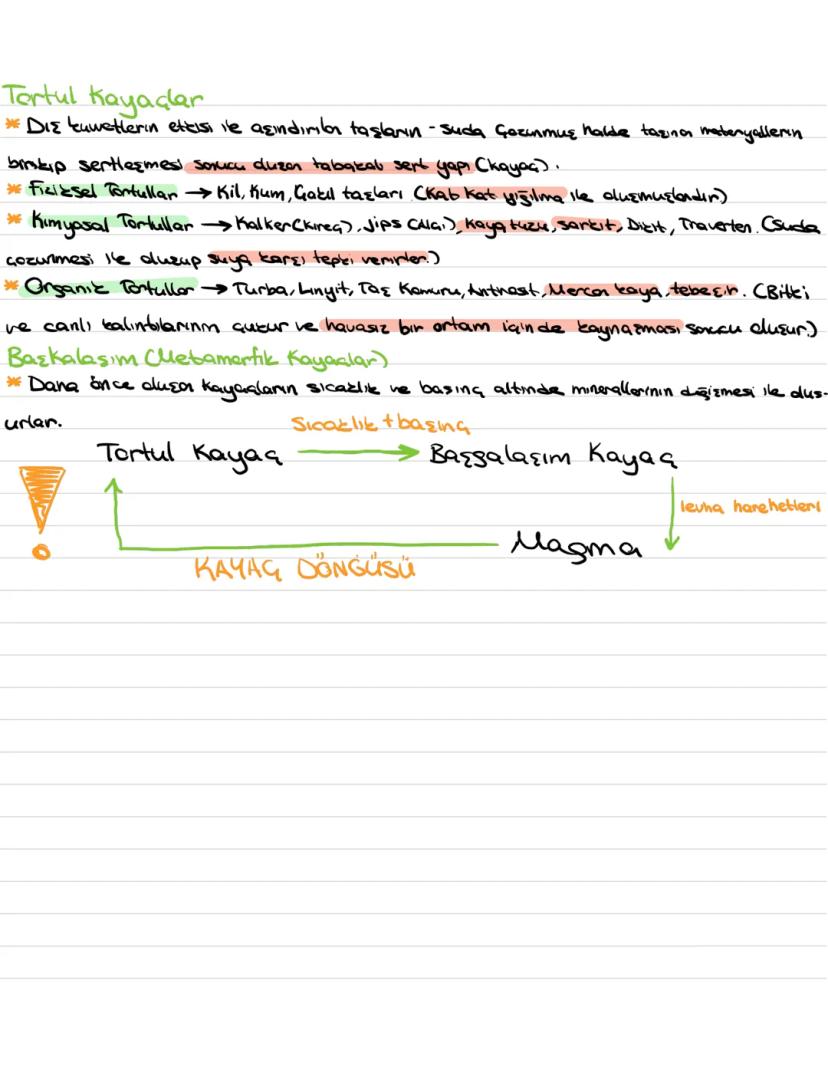 Tortul Kayaçlar
* Dış kuvvetlerin etkisi ile aşındırılan taşların - suda çözünmüş halde taşınan materyallerin
birikip sertleşmesi sonucu oluşan tabakalı sert yapı (kayaç).
* Fiziksel Tortullar → Kil, Kum, Çakıl taşları (Kat kat yığılma ile oluşmuşlardır)
* Kimyasal Tortullar → Kalker (kireç), Jips (Alçı), Kaya tuzu, sarkıt, Dikit, Traverten. (suda
çözünmesi ile oluşup suya karşı tepki verirler.)
* Organik Tortullar → Turba, Linyit, Taş Kömürü, Antrasit, Mercan kaya, tebeşir. (Bitki
ve canlı kalıntılarının çukur ve havasız bir ortam içinde kaynaşması sonucu oluşur.)
Başkalaşım (Metamorfik Kayaçlar)
* Daha önce oluşan kayaçların sıcaklık ve basınç altında minerallerinin değişmesi ile oluş-
urlar.
Sıcaklık + basınç
Tortul Kayaç → Başgalaşım Kayaç
levha hareketleri
Magma
KAYAÇ DÖNGÜSÜ